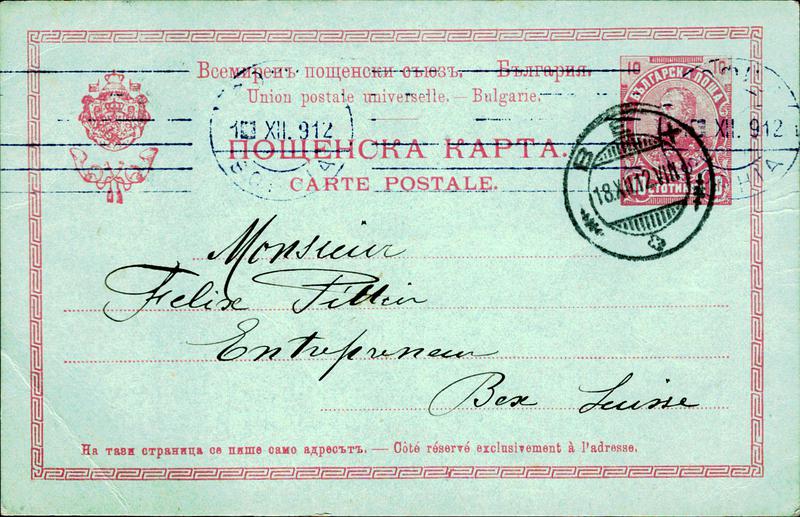 Всемиренъ пощенски съюзъ. — България.
Union postale universelle. — Bulgarie.
ПОЩЕНСКА КАРТА.
CARTE POSTALE.
10
БЪЛГАРСКА ПОЩА
XII. 912
XII. 912
BEX
18.XII.12.VIII
Monsieur
Felix
Entrepreneur
Bex Suisse
На тази страница се пише само адресътъ. — Côté réservé exclusivement à l'adresse.